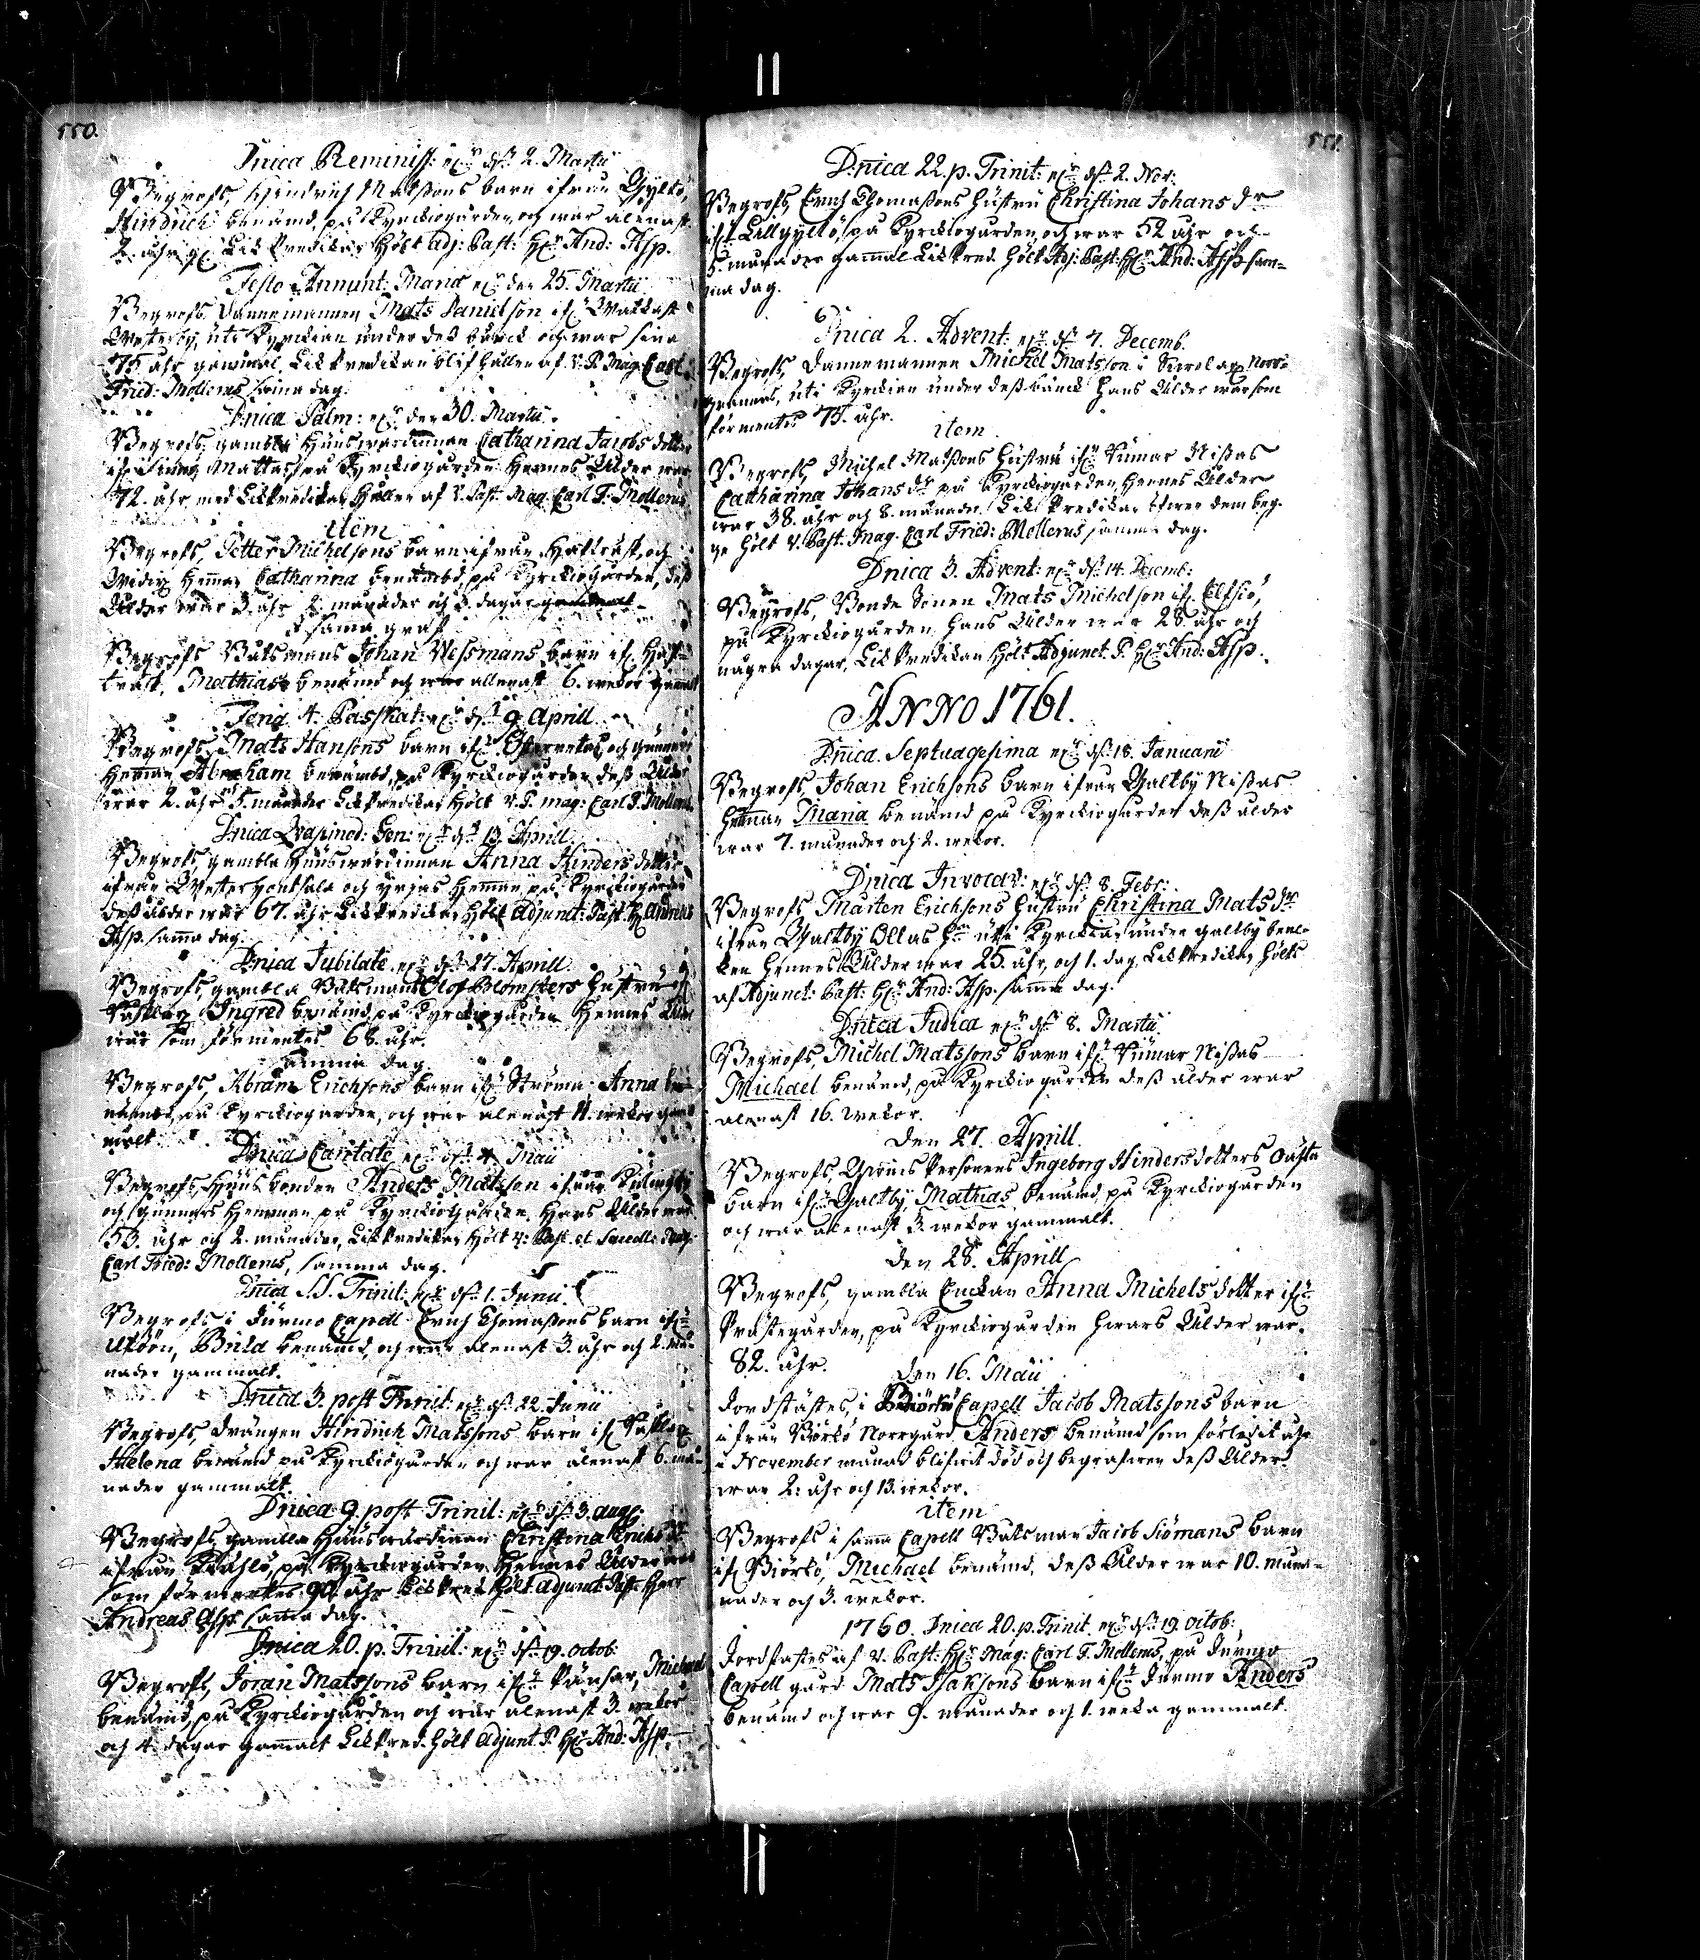 550.
Dnica Reminisc: d. 2. Martii
Begrofs, Hindrich Matssons barn ifrån Gyltö,
Hindrich benämd, på Kyrckiogården, och war alenast
2. åhr Lik Predikan Hölt adj: Past: And: Asp.
Festo Annunt: Maria den 25. Martii
Begrofs Dannemannen Mats Danielson
Westerby, uti Kyrckian under deß bänck och war sina
75 åhr gammal, Likpredikan blef hållen af V. P. Mag. Carl
Fried: Mollerus samma dag.
Dnica Palm: den 30. Martii
Begrofs, gambla Huuswärdinnan Catharina Jacobs dotter
Mattas på Kyrckiogården Hennes Ålder war
72. åhr med Likpredikan Hållen af V. Past. Mag. Carl F. Mollerus
item
Begrofs, Petter Michelsons barn ifrån och
Catharina benämbd, på Kyrckiogården, deß
Ålder war 3. åhr 2. månader och 3. dagar
i sama graf
Begrofs Båtsmans Johan Wessmans barn
Mathias benämd och war allenast 6. wekor
Feria 4. Paschat: d. 9 Aprill
Begrofs, Mats Hansons barn och
Hemman Abraham benämbd, på Kyrckiogården deß Ålder
war 2. åhr 5. månader Likpredikan Hölt V. P. mag: Carl F. Mollerus
Dnica Quasimod: Gen: d. 13. Aprill
Begrofs gambla Huuswärdinnan Anna Hinders dotter
ifrån och Hemman, på Kyrckiogården
deß ålder war 67. åhr Likpredikan Hölt Adjunct: Past. Andreas
Asp. samma dag.
Dnica Jubilate d. 27. Aprill
Begrofs, gambla Båtsmans Olof Blomsters Hustru
Ingred benämd, på Kyrckiogården Hennes Ålder
war som förmentes 68. åhr.
samma dag
Begrofs, Abram Erichsons barn Ströma Anna be-
nämbd, på Kyrckiogården, och war alenast 11. wekor gam-
malt
Dnica Cantate d. 4 Maii
Begrofs, Huusbonden Anders Matsson ifrån
och Gunnars Hemman på Kyrckiogården. Hans Ålder war
53. åhr och 2. månader, Likpredikan Hölt V: Past. et Sacell: Mag:
Carl Fried: Mollerus, samma dag.
Dnica S.S. Trinit: d. 1. Junii
Begrofs i Jurmo Capell Erich Thomassons barn
Utöön, Brita benämd, och war alenast 3. åhr och 2. må-
nader gammalt.
Dnica 3. post Trinit d. 22. Junii
Begrofs, Drängen Hindrich Matssons barn
Helena benämd på Kyrckiogården och war alenast 6. må-
nader gammalt.
Dnica 9. post Trinit: d. 3. aug:
Begrofs, gambla Huuswärdinnan Christina Erichs dr
ifrån på Kyrckiogården Hennes Ålder war
som förmentes 90 åhr Likpred. Hölt Adjunct Past: Herr
Andreas Asp samma dag.
Dnica 20. p. Trinit: d. 19. octob:
Begrofs, Joran Matssons barn Pänsar, Michael
benämd, på Kyrckiogården och war alenast 3. wekor
och 4. dagar gammalt Likpred. Hölt Adjunt. P. And: Asp.
551.
Dnica 22. p. Trinit: d. 2. Nov:
Begrofs, Erich Thomassons Hustru Christina Johans dr
Lillgyltö, på Kyrckiogården, och war 52 åhr och
5. månader gammal Likpred. Hölt Adj: Past: And: Asp sam-
ma dag.
Dnica 2. Advent: d. 7. Decemb.
Begrofs, Dannemannen Michel Matsson i Norr-
uti Kyrckian under deß bänck Hans Ålder war som
förmentes 75. åhr.
item
Begrofs, Michel Matssons Hustru Wimar Nissas
Catharina Johans dr på Kyrckiogården, Hennes Ålder
war 38. åhr och 8. månader. Lik Predikan öfwer dem beg-
ge Hölt V. Past. Mag. Carl Fried: Mollerus samma dag.
Dnica 3. Advent: d. 14. Decemb:
Begrofs, Bonde Sonen Mats Michelson Elfsiö,
på Kyrckiogården Hans Ålder war 28. åhr och
några dagar, Likpredikan Hölt Adjunct. P. And: Asp.
ANNO 1761.
Dnica. Septuagesima d. 18. Januarii
Begrofs, Johan Erichsons barn ifrån Galtby Nissas
Hemman Maria benämd på Kyrckiogården deß ålder
war 7. månader och 2. wekor.
Dnica Invocav: d. 8. Febr:
Begrofs Mårten Erichsons Hustru Christina Mats dr
ifrån Galtby Ollas uti Kyrckian under galtby benc-
ken Hennes Ålder war 25. åhr, och 1. dag, Likpredikan Hölts
af Adjunct: Past: And: Asp. samma dag.
Dnica Judica d. 8. Martii
Begrofs, Michel Matssons barn Wimar Nissas
Michael benämd, på Kyrckiogården deß ålder war
alenast 16. wekor.
Den 27. Aprill
Begrofs, Qwins Personens Ingeborg Hindersdotters oächta
barn Galtby, Mathias benämd, på Kyrckiogården
och war alenast 3. wekor gammalt.
Den 28. Aprill
Begrofs, gambla Enckan Anna Michels dotter
Prästegården, på Kyrckiogården hwars Ålder war
82. åhr.
Den 16. Maii
Jordfästes, i Biörkö Capell Jacob Matssons barn
ifrån Biörkö Norrgård Anders benämd som förledit åhr
i November månad blifwit död och begrafwen deß Ålder
war 2: åhr och 13. wekor.
item
Begrofs i samma Capell Båtsman Jacob Siömans barn
Biörkö, Michael benämd, deß Ålder war 10. må-
nader och 3. wekor.
1760. Dnica 20. p. Trinit d. 19. octob:
Jordfästes af V. Past: Mag: Carl F. Mollerus, på Jurmo
Capell gård Mats Isaksons barn Jurmo Anders
benämd och war 9. månader och 1. weka gammalt.